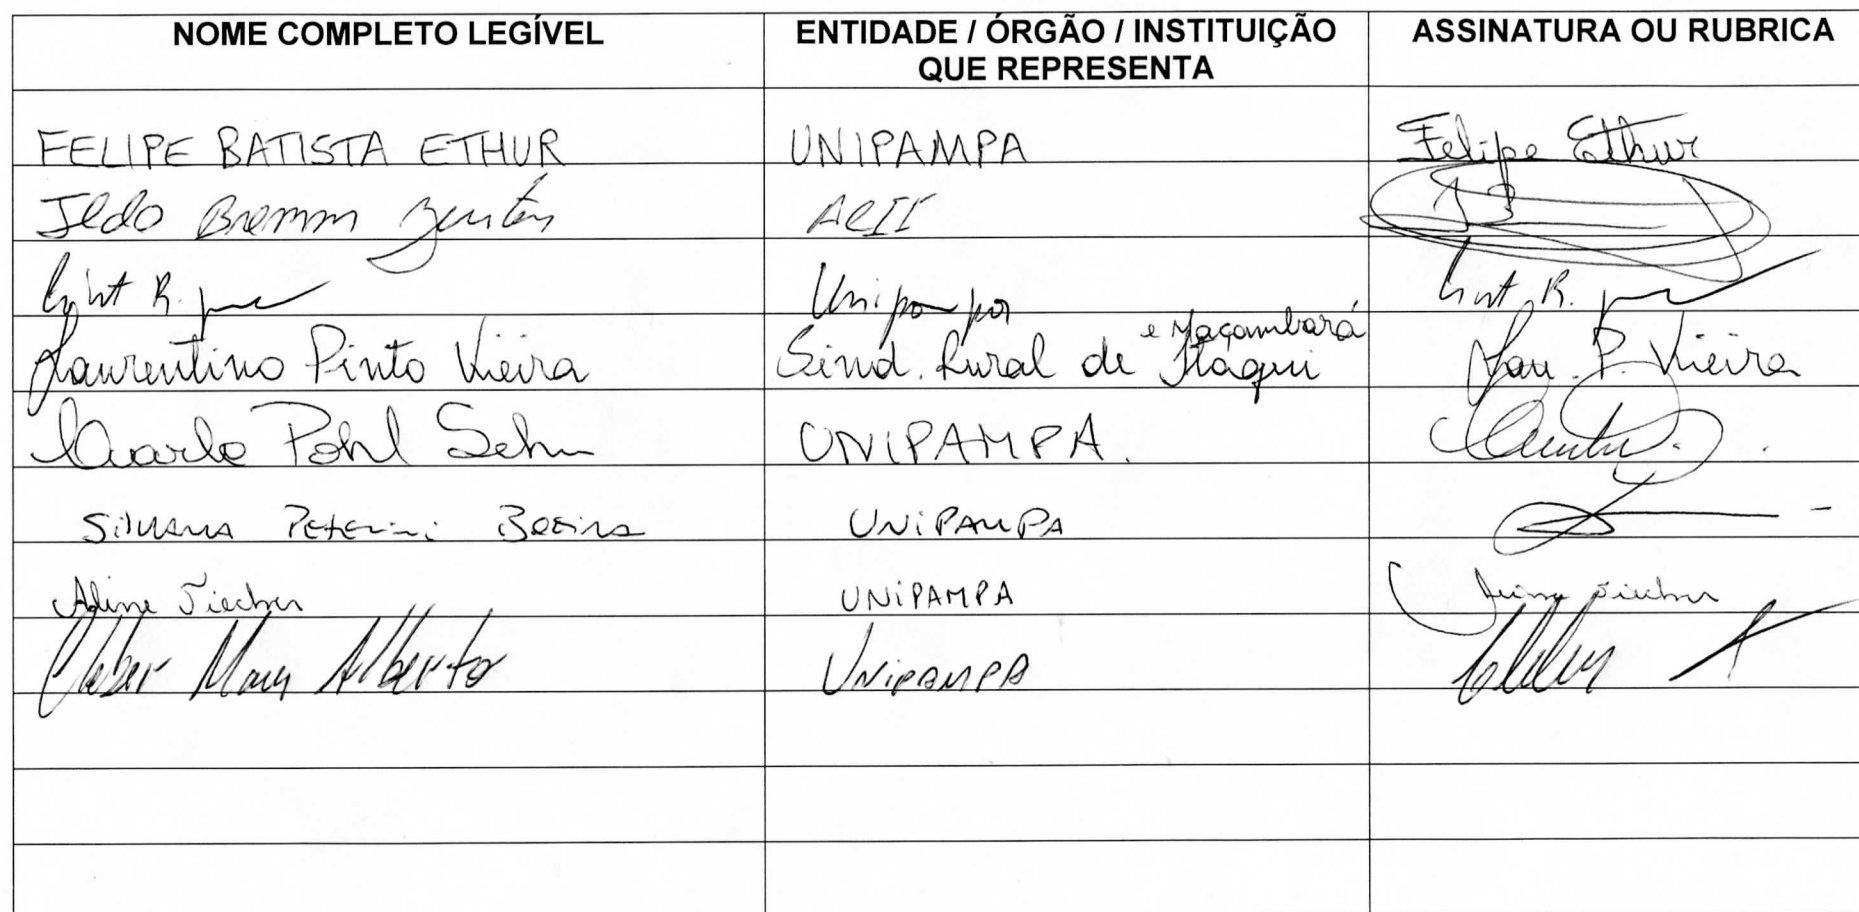 NOME COMPLETO LEGÍVEL ENTIDADE / ÓRGÃO / INSTITUIÇÃO QUE REPRESENTA ASSINATURA OU RUBRICA
FELIPE BATISTA ETHUR UNIPAMPA Felipe Ethur
Ildo Bremm ACII
R. Unipampa R.
Laurentino Pinto Vieira Sind. Rural de Itaqui e Maçambará Lau. P. Vieira
Pohl Sehn UNIPAMPA.
Silvana Peterini UNIPAMPA
Aline Tiecher UNIPAMPA Aline Tiecher
Cleber Maus Alberto UNIPAMPA